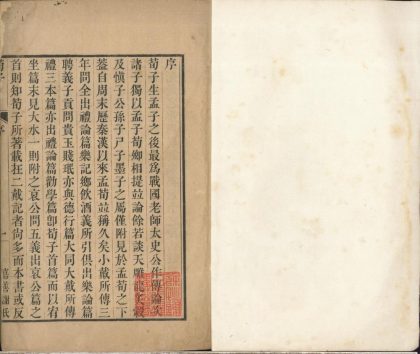 序
荀子生孟子之後最為戰國老師太史公作傳論次
諸子獨以孟子荀卿相提並論餘若談天雕龍炙轂
及愼子公孫子尸子墨子之屬僅附見於孟荀之下
蓋自周末歷秦漢以來孟荀並稱久矣小戴所傳三
年問全出禮論篇樂記鄉飲酒義所引俱出樂論篇
聘義子貢問貴玉賤珉亦與德行篇大同大戴所傳
禮三本篇亦出禮論篇勸學篇卽荀子首篇而以宥
坐篇末見大水一則附之哀公問五義出哀公篇之
首則知荀子所著載在二戴記者尙多而本書或反
荀子
序
一
嘉善謝氏